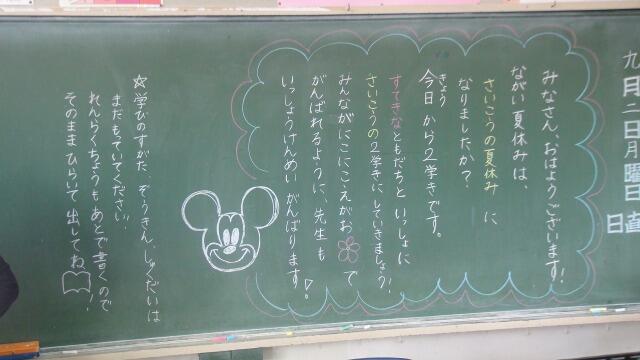 九月二日月曜日
日直
みなさん、おはようございます!
ながい夏休みは、
さいこうの夏休み に
なりましたか?
きょう
今日 から2学きです。
すてきなともだちと いっしょに
さいこうの2学きにしていきましょう!
みんながにこにこえがおで
がんばれるように、先生も
いっしょうけんめい がんばります!。
☆学びのすがた、ぞうきん、しゅくだいは
まだもっていてください。
れんらくちょうもあとで書くので
そのまま ひらいて 出してね!